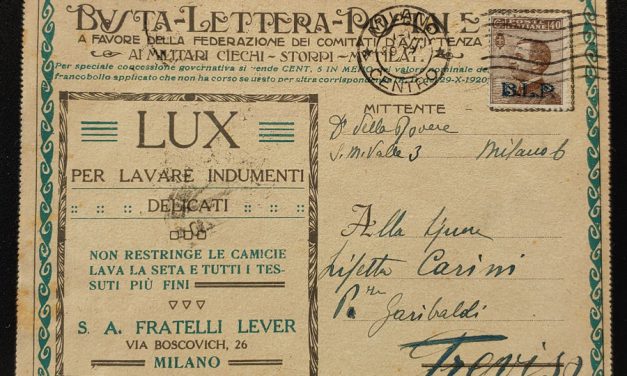 BUSTA-LETTERA-POSTALE
A FAVORE DELLA FEDERAZIONE DEI COMITATI D'ASSISTENZA
AI MILITARI CIECHI - STORPI -
Per speciale concessione governativa si vende CENT. 5 IN MENO del valore nominale del
francobollo applicato che non ha corso se usato per altre corrispondenze
MILANO
CENTRO
POSTE ITALIANE 40
B.L.P.
MITTENTE
Della Rovere
S. M. Valle 3 Milano 6
LUX
PER LAVARE INDUMENTI
DELICATI
NON RESTRINGE LE CAMICIE
LAVA LA SETA E TUTTI I TES-
SUTI PIÙ FINI
S. A. FRATELLI LEVER
VIA BOSCOVICH, 26
MILANO
Alla
Carini
Garibaldi
Treviso